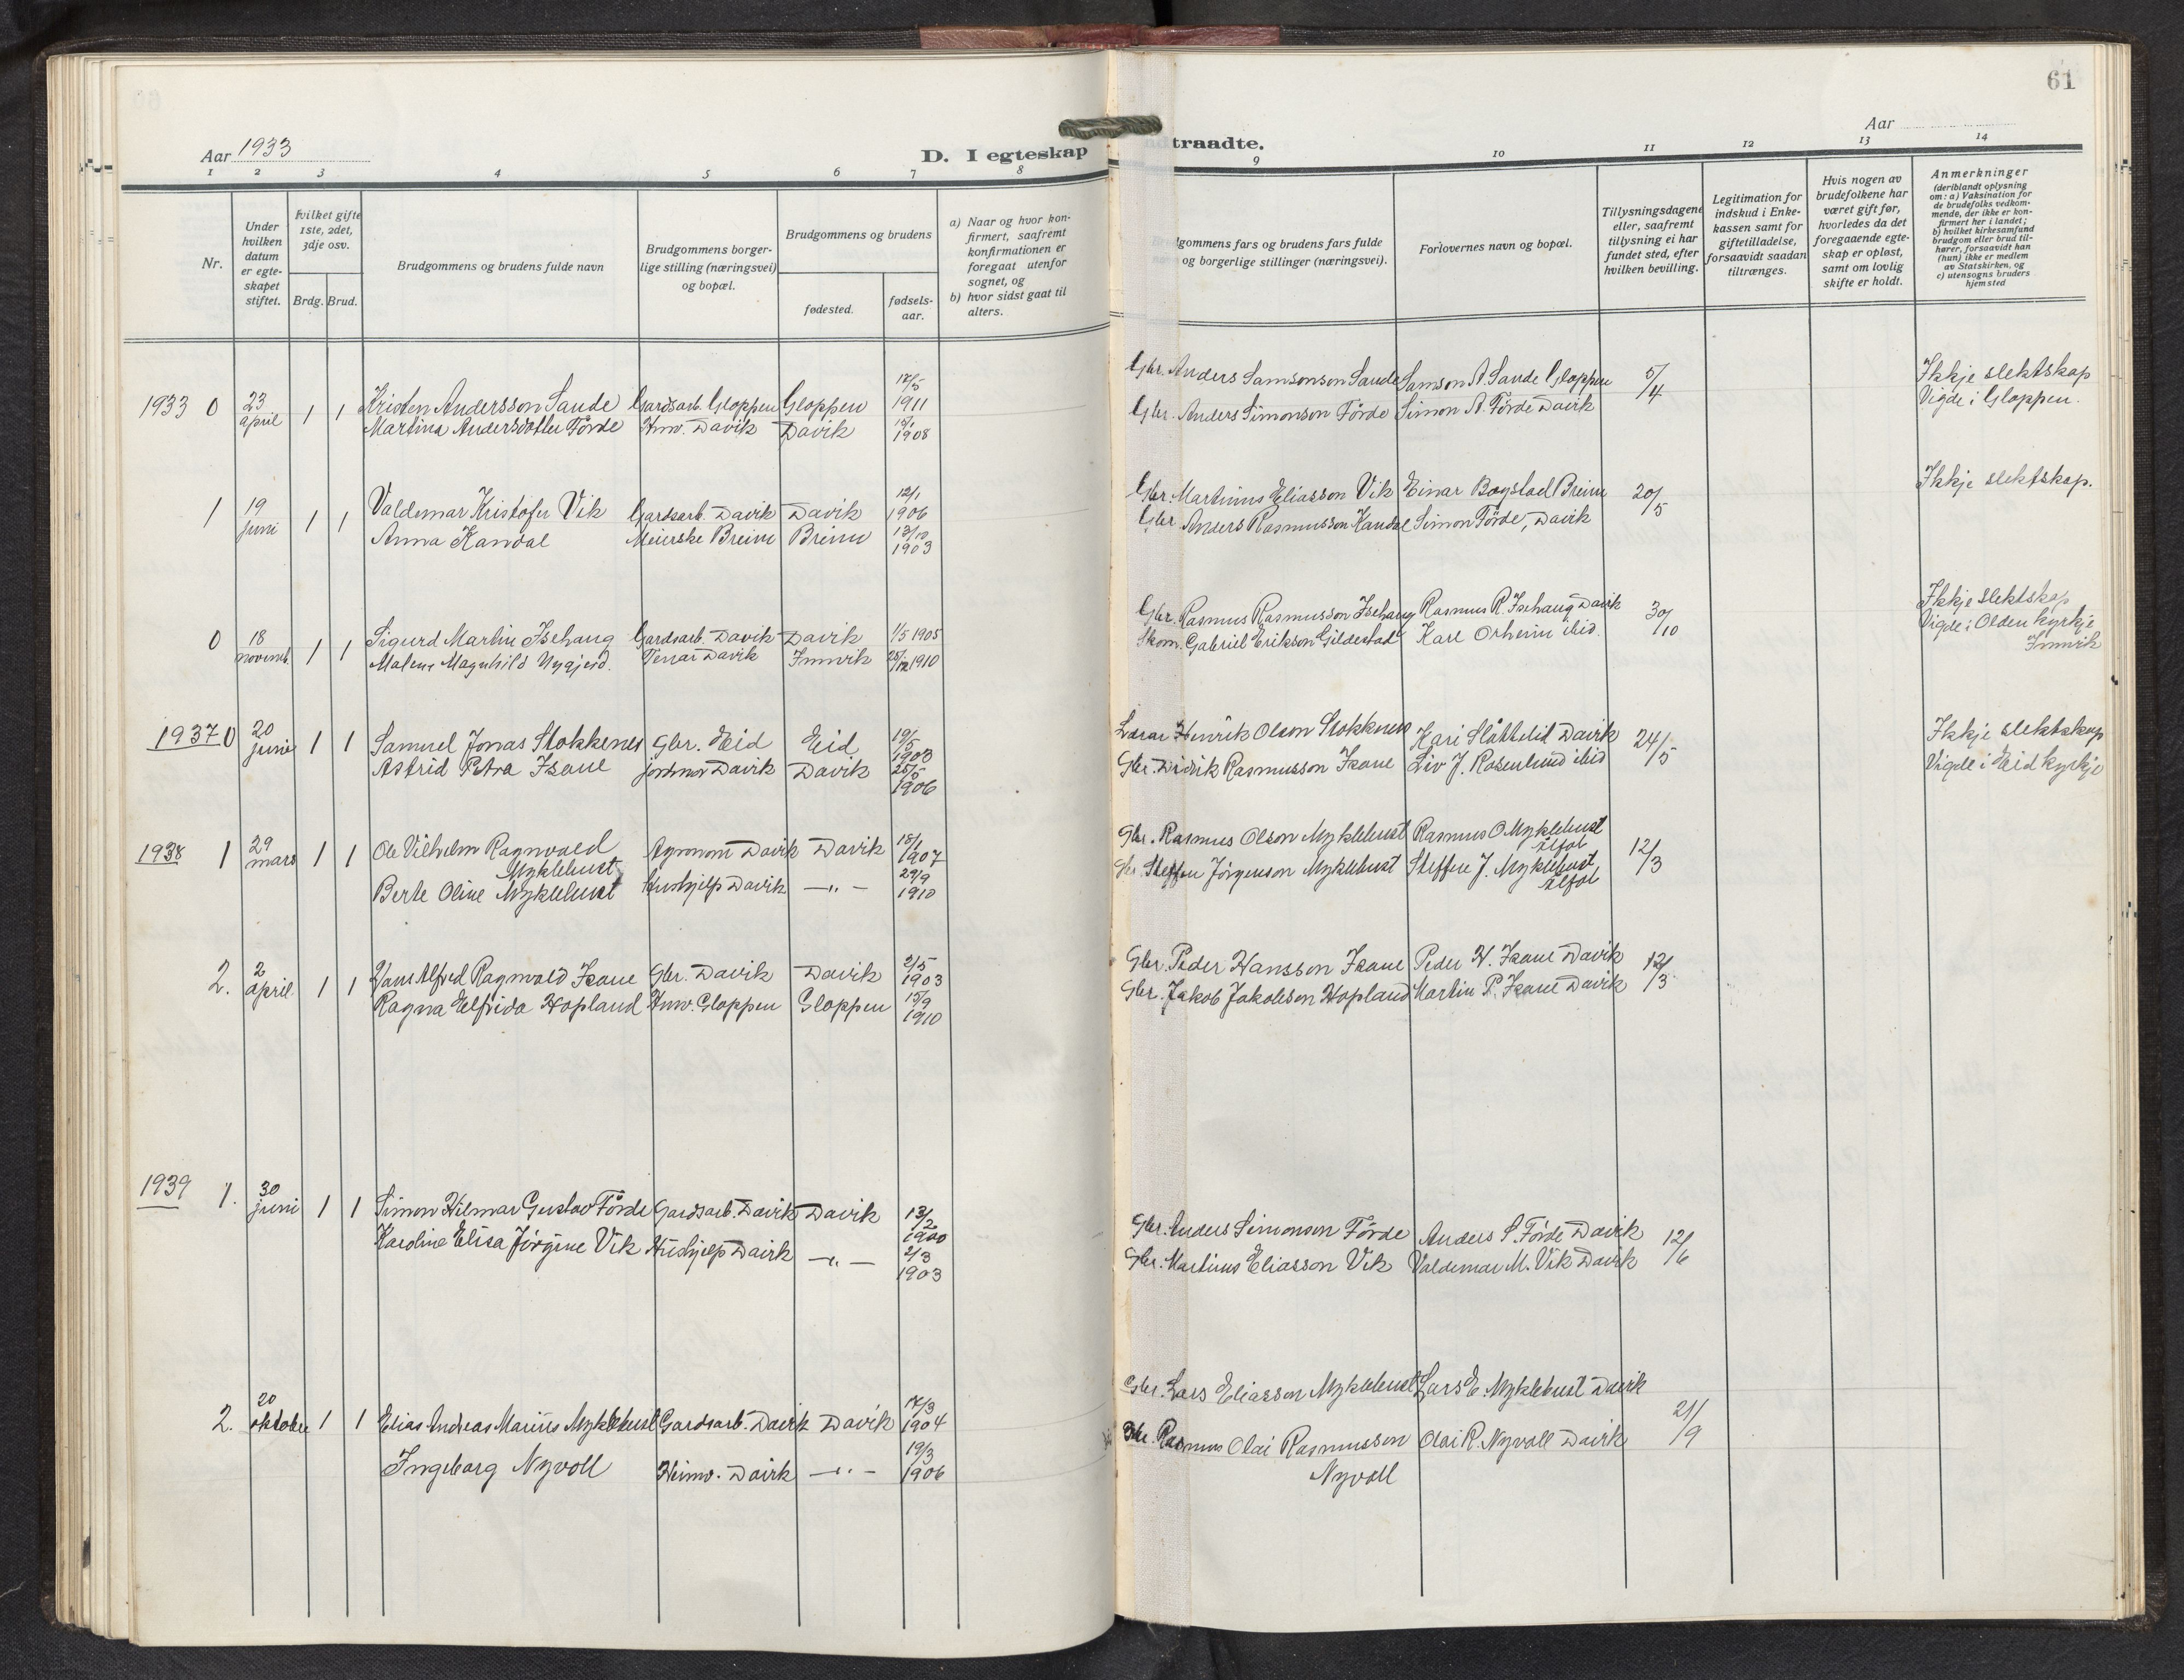 61
Aar 1933
D. I egteskap
indtraadte.
Aar
1 2 3 4 5 6 7 8
9 10 11 12 13 14
Nr.
Under hvilken datum er egteskapet stiftet.
Hvilket gifte 1ste, 2det, 3dje osv.
Brdg. Brud.
Brudgommens og brudens fulde navn
Brudgommens borgerlige stilling (næringsvei) og bopæl.
Brudgommens og brudens
fødested.
fødselsaar.
a) Naar og hvor konfirmert, saafremt konfirmationen er foregaat utenfor sognet, og
b) hvor sidst gaat til alters.
Brudgommens fars og brudens fars fulde
og borgerlige stillinger (næringsvei).
Forlovernes navn og bopæl.
Tillysningsdagene eller, saafremt tillysning ei har fundet sted, efter hvilken bevilling.
Legitimation for indskud i Enkekassen samt for giftetilladelse, forsaavidt saadan tiltrænges.
Hvis nogen av brudefolkene har været gift før, hvorledes da det foregaaende egteskap er opløst, samt om lovlig skifte er holdt.
Anmerkninger
(deriblandt oplysning om: a) Vaksination for de brudefolks vedkommende, der ikke er konfirmert her i landet; b) hvilket kirkesamfund brudgom eller brud tilhører, forsaavidt han (hun) ikke er medlem av Statskirken, og c) utensogns bruders hjemsted
1933 0 23 april 1 1 Kristen Andersson Sande Gardsarb. Gloppen Gloppen 12/5 1911 Gbr. Anders Samsonson Sande Samson A. Sande Gloppen 5/4 Ikkje slektskap
Martina Andersdotter Förde Hmv. Davik Davik 1908 Gbr. Anders Simonson Förde Simon A. Förde Davik Vigde i Gloppen.
1 19 juni 1 1 Valdemar Kristofer Vik Gardsarb. Davik Davik 12/1 1906 Gbr. Martinus Eliasson Vik Einar Bogstad Breim 20/5 Ikkje slektskap.
Anna Kandal Meierske Breim Breim 13/10 1903 Gbr Anders Rasmusson Kandal Simon Förde, Davik
0 18 novemb. 1 1 Sigurd Martin Isehaug Gardsarb. Davik Davik 1/5 1905 Gbr. Rasmus Rasmusson Isehaug Rasmus R. Isehaug Davik 30/10 Ikkje slektskap
Malene Magnhild Nygjerd. Tenar Davik Innvik 25/12 1910 Skom. Gabriel Erikson Gildestad Karl Orheim ibid. Vigde i Olden kyrkje
Innvik
1937 0 20 juni 1 1 Samuel Jonas Stokkenes Gbr. Eid Eid 19/5 1903 Lærar Henrik Olson Stokkenes Kari Slåttelid Davik 24/5 Ikkje slektskap
Astrid Petra Isane jordmor Davik Davik 25/5 1906 Gbr. Didrik Rasmusson Isane Liv J. Rosenlund ibid Vigde i Eid kyrkje
1938 1 29 mars 1 1 Ole Vilhelm Ragnvald Agronom Davik Davik 18/1 1907 Gbr. Rasmus Olson Myklebust Rasmus O Myklebust 12/3
Myklebust Ålfot
Berte Oline Myklebust Hushjelp Davik — " — 29/9 1910 Gbr. Steffen Jörgenson Myklebust Steffen J. Myklebust
Ålfot
2. 2 april 1 1 Hans Alfred Ragnvald Isane Gbr. Davik Davik 2/5 1903 Gbr. Peder Hansson Isane Peder H. Isane Davik 12/3
Ragna Elfrida Hopland Hmv. Gloppen Gloppen 15/9 1910 Gbr. Jakob Jakobson Hopland Martin P. Isane Davik
1939 1. 30 juni 1 1 Simon Hilmar Gustav Förde Gardsarb. Davik Davik 13/2 1900 Gbr. Anders Simonson Förde Anders S. Förde Davik 12/6
Karoline Elisa Jörgine Vik Hushjelp Davik — " — 2/3 1903 Gbr. Martinus Eliasson Vik Valdemar M. Vik Davik
2. 20 oktober 1 1 Elias Andreas Marius Myklebust Gardsarb. Davik Davik 17/3 1904 Gbr. Lars Eliasson Myklebust Lars E. Myklebust Davik 21/9
Ingeborg Nyvoll Heimv. Davik — " — 19/3 1906 Gbr. Rasmus Olai Rasmusson Olai R. Nyvoll Davik
Nyvoll